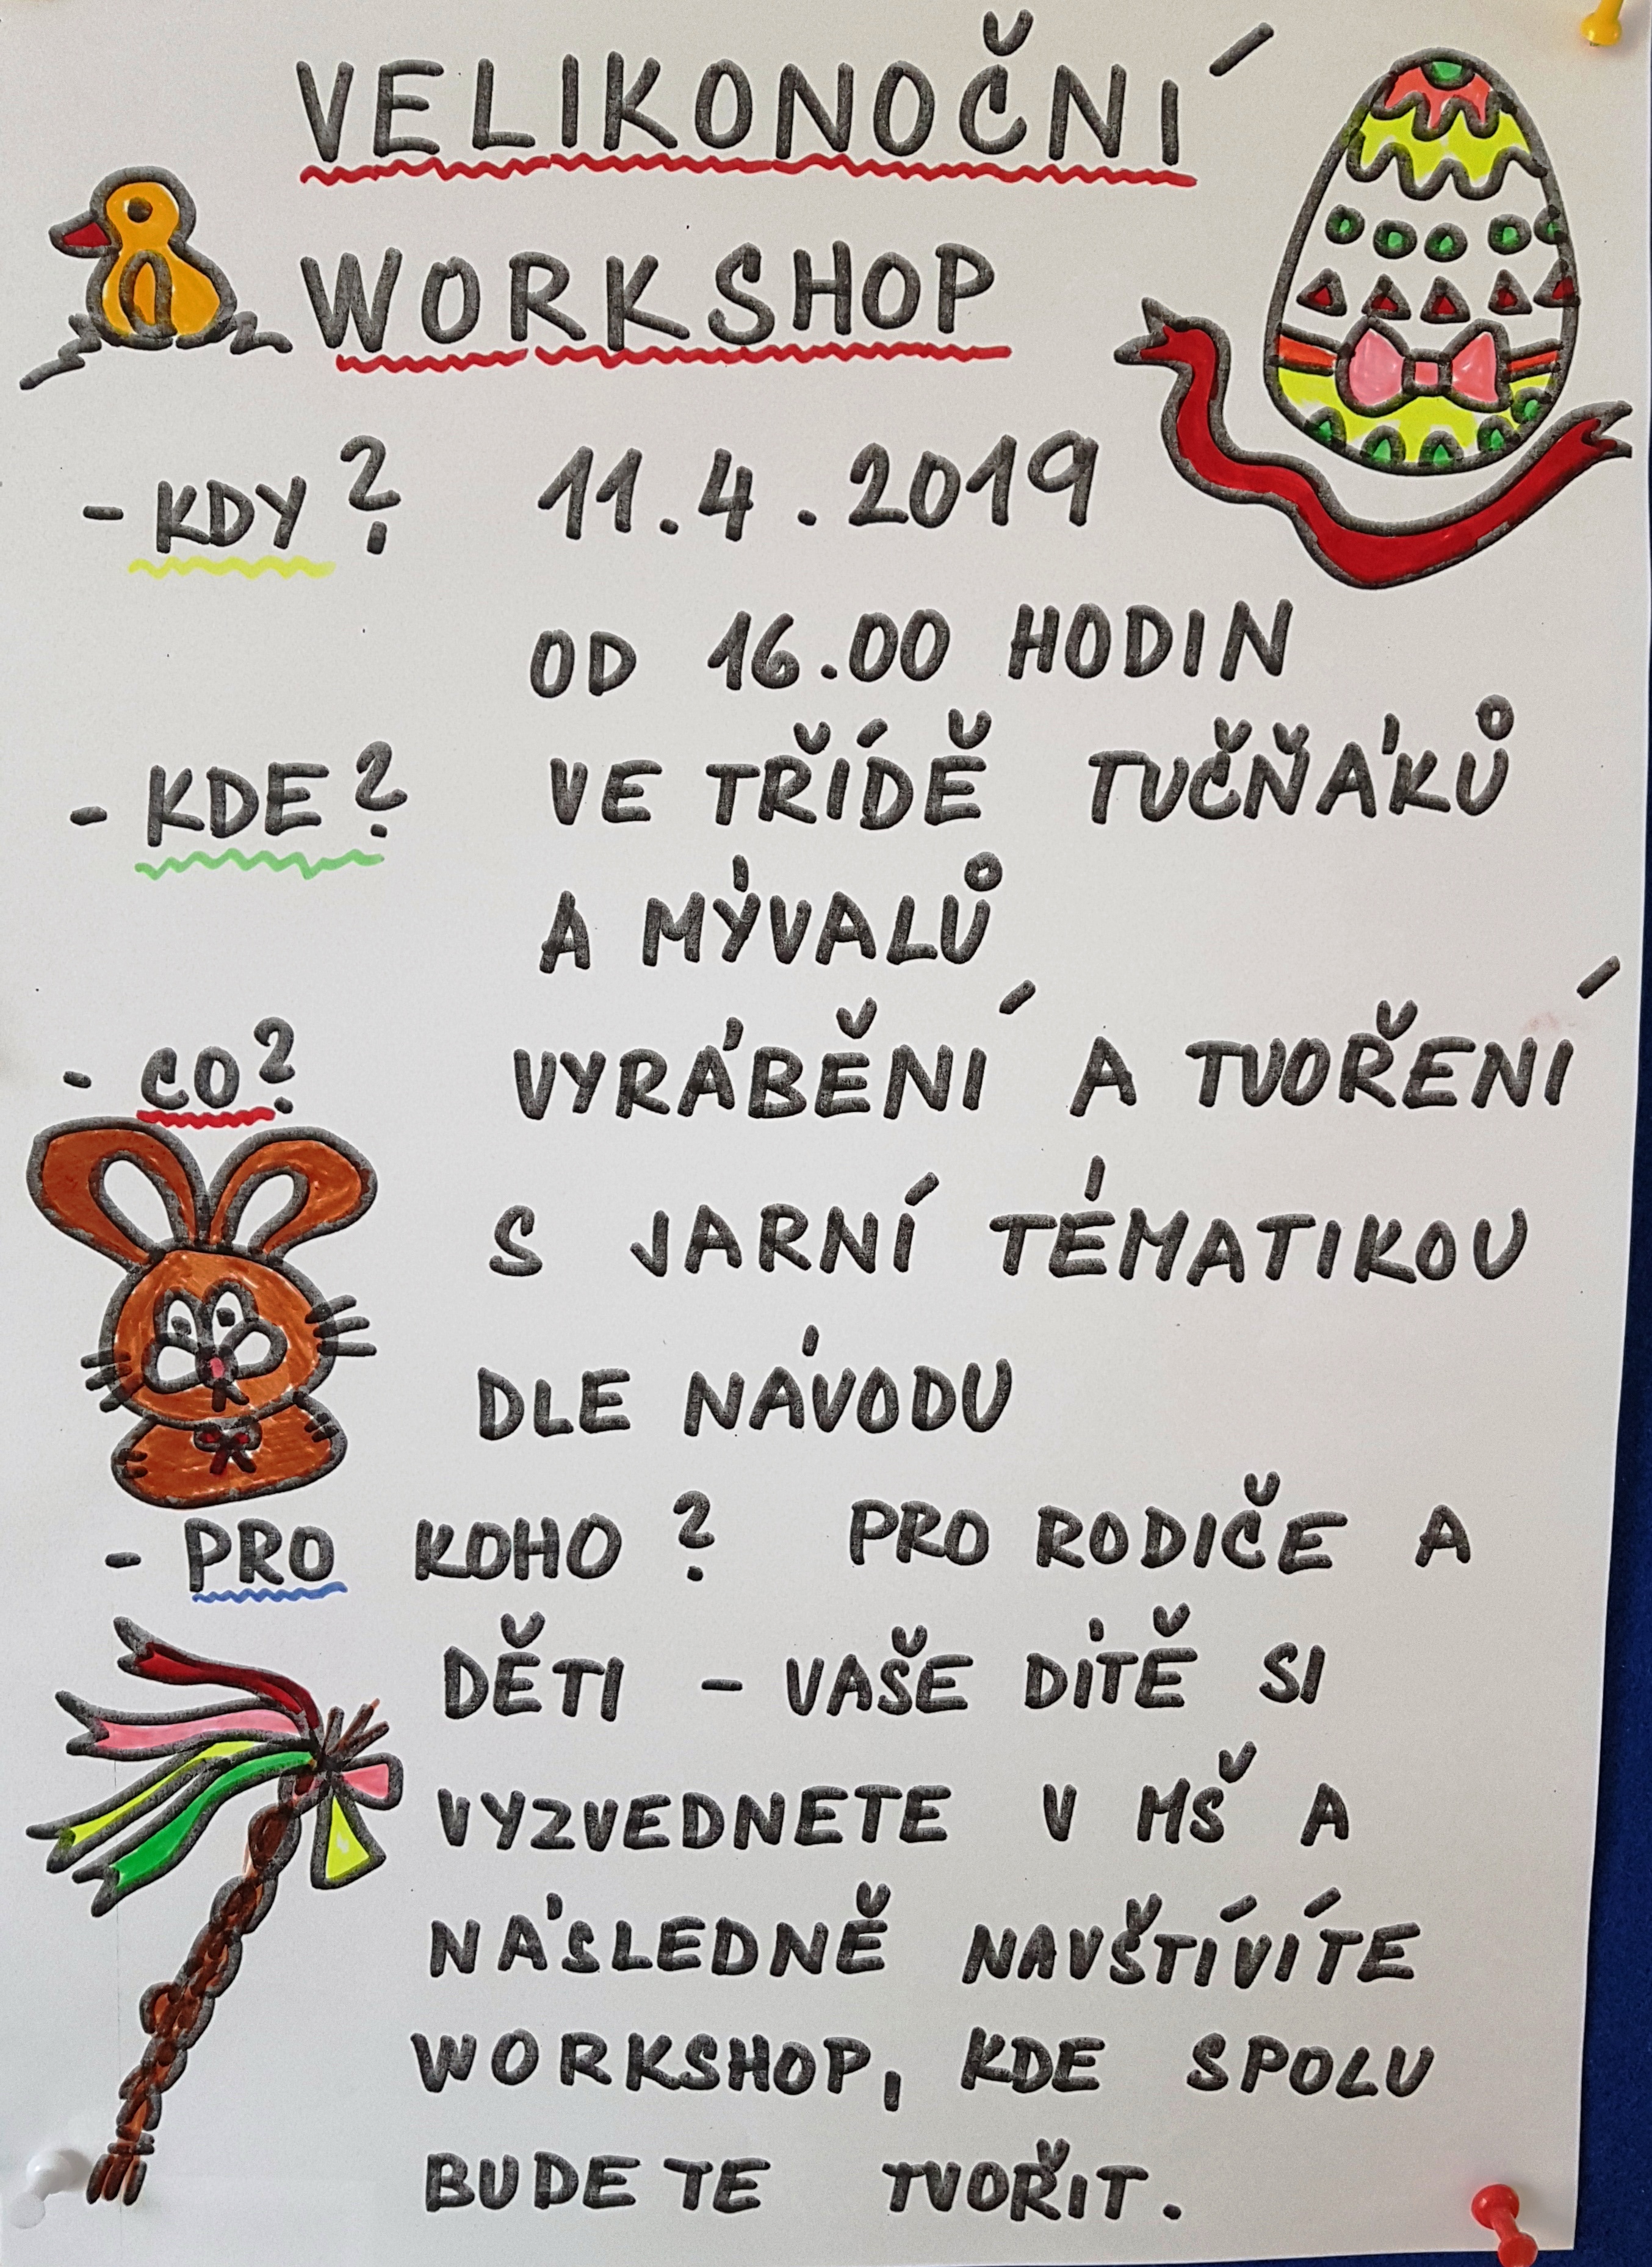 VELIKONOČNÍ
WORKSHOP
- KDY? 11.4.2019
OD 16.00 HODIN
- KDE? VE TŘÍDĚ TUČŇÁKŮ
A MÝVALŮ
- CO? VYRÁBĚNÍ A TVOŘENÍ
S JARNÍ TÉMATIKOU
DLE NÁVODU
- PRO KOHO? PRO RODIČE A
DĚTI - VAŠE DÍTĚ SI
VYZVEDNETE V MŠ A
NÁSLEDNĚ NAVŠTÍVÍTE
WORKSHOP, KDE SPOLU
BUDETE TVOŘIT.